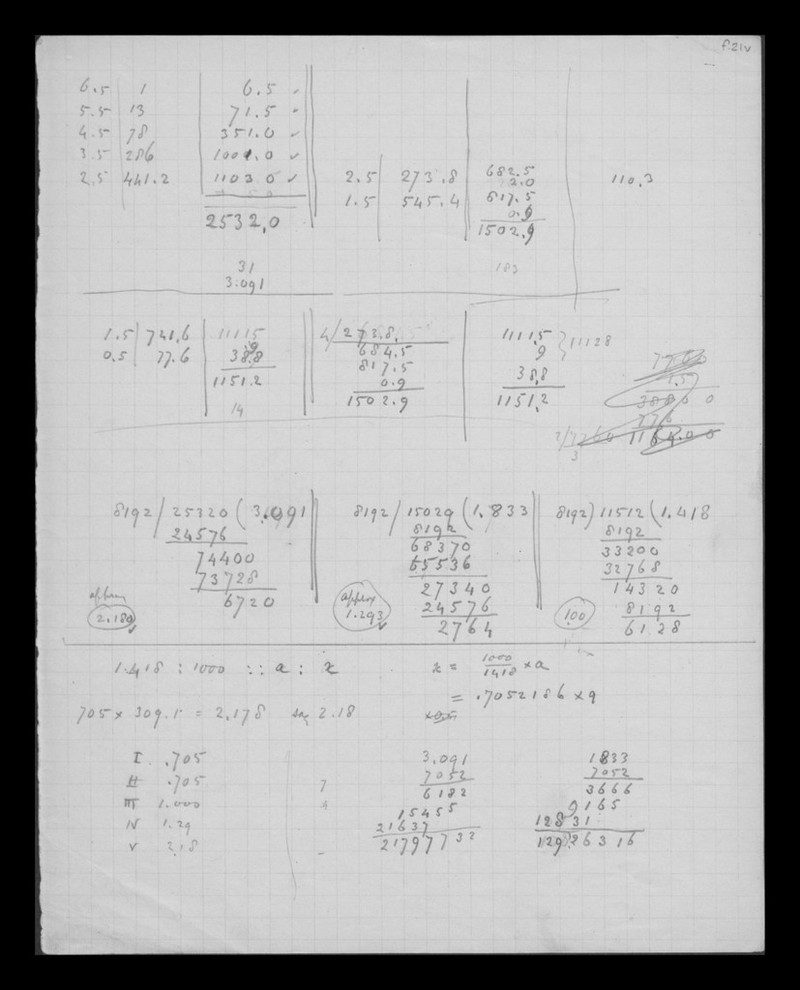 f.21v
6.5 1 6.5
5.5 13 71.5
4.5 78 351.0 ✓
3.5 286 1001.0 ✓
2.5 441.2 1103 0 ✓
2532.0
31
3.091
2.5 273.8 682.5
2.0
1.5 545.4 817.5
0.9
1502.9
183
110.3
1.5 741.6 11115
.9
0.5 77.6 38.8
1151.2
14
4/273.8
684.5
817.5
0.9
1502.9
1111.5 } 11128
9
38.8
1151.2
8192/25320(3.091
24576
74400
73728
6720
approx
2.180 ✓
8192/15029(1.833
8192
68370
65536
27340
24576
2764
approx
1.293 ✓
8192)11512(1.418
8192
33200
32768
14320
8192
6128
100
1.418 : 1000 :: a : x
x = 1000/1418 × a
= .7052186 × 9
705 × 309.1 = 2.178 say 2.18
I .705
II .705 7
III 1.000
IV 1.29
V 2.18
3.091
7052
6182
15455
21637
21797732
1833
7052
3666
9165
12831
12926316